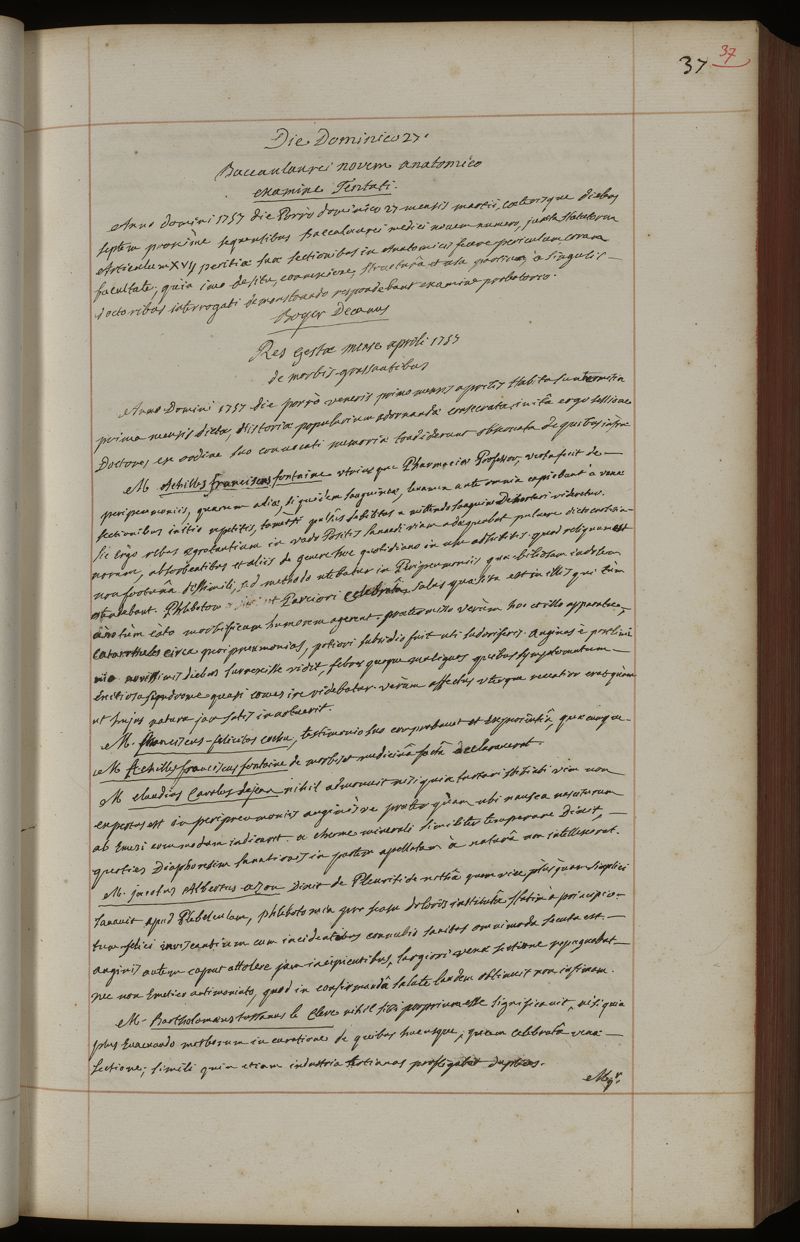 37 37
Die Dominico 27.
Baccalaurei novem anatomico
examine Tentati.
Anno Domini 1757 die Porrò dominico 27 mensis martii, coeterisque diebus
septem proximè sequentibus Baccalaurei medici novem numero, juxta statutorum
Articulum XVIJ peritiæ suæ sectionibus in Anatomicis fecere periculum coram
facultate, quia imo de situ, connexione, structurâ et usu partium a singulis
doctoribus interrogati demonstrando respondebant examine probatorio.
Boyer Decanus
Res Gestæ mense aprili 1757
de morbis grassantibus
Anno Domini 1757 die porrò veneris primo mensis aprilis Habita sunt comitia
prima mensis dicta, Historiæ popularium adornandæ consecrata, in illâ ergo sessione
Doctores ex ordine suo convocati memoriæ tradiderunt observata de quibus infra
M Achilles Franciscus fontaine utriusque Pharmaciæ Professor, verba fecit de
peripneumoniis, quarum aliæ, siquidem sanguineæ, levamen ante omnia capiebant à venæ
sectionibus initio repetitis, tametsi pulsûs debilitas a mittendo sanguine Dehortari videretur.
sic ergo rebus ægrotantium in vado Positis sanandi viam adæquabat
absorbentibus et aliis de genere hoc quotidiano in usu adhibitis. quod reliquum est
non fortunâ dissimili, sed methodo utebatur in Peripneumoniis quæ biliosam indolem
Phlebotom Parciori celebratâ salus quæsita est in illis qui
morbificum humorem agerent. prætermisso verùm hoc et illo apparatu,
catarrhales circa peripneumonias, potiori subsidio fuit uti sudoriferis. anginas è
novissimis diebus surrexisse vidit, febres quoque malignas quibus symptomatum
Exitiosa syndrome quasi comes ire videbatur. verùm affectus uterque
ut hujus natura jam satis innotuerit.
M. franciscus-felicitas cochu, testimonio suo comprobavit et Experientiâ, quæcunque
M Achilles franciscus fontaine de morbis et medicinâ factâ declaraverat.
M claudius Carolus dejean nihil admonuit nisi quia tartari stibiati vim non
expertus est in peripneumoniis anginisve præter quàm ubi nausea nasciturum
ab Emesi commodum indicarit. a cherme minerali similiter temperare Dixit,
quoties Diaphoresim sanationis in partem apellatam à naturâ non intellexerat.
M. jacobus Albertus azou Dixit de Pleuritide nothâ quem vice plus quam simplici
sanavit apud Plebeculam, phlebotomiâ pro scopo doloris institutâ statim à principio
tum felici inviscantium cum incidentibus connubio sanitas omnimoda secuta est.
anginis autem caput attollere jam incipientibus, largiori venæ sectione repugnabat
nec non Emetico antimoniato, quod in confirmandâ salute laudem obtinuit non infimam.
M. Bartholomæus tussanus le Clerc nihil sibi proprium esse significavit, nisi quia
plus Evacuando morborum in curatione de quibus hucusque, quam celebratâ venæ
sectione; simili quin etiam industria tertianas profligabat duplices.
Mgr.